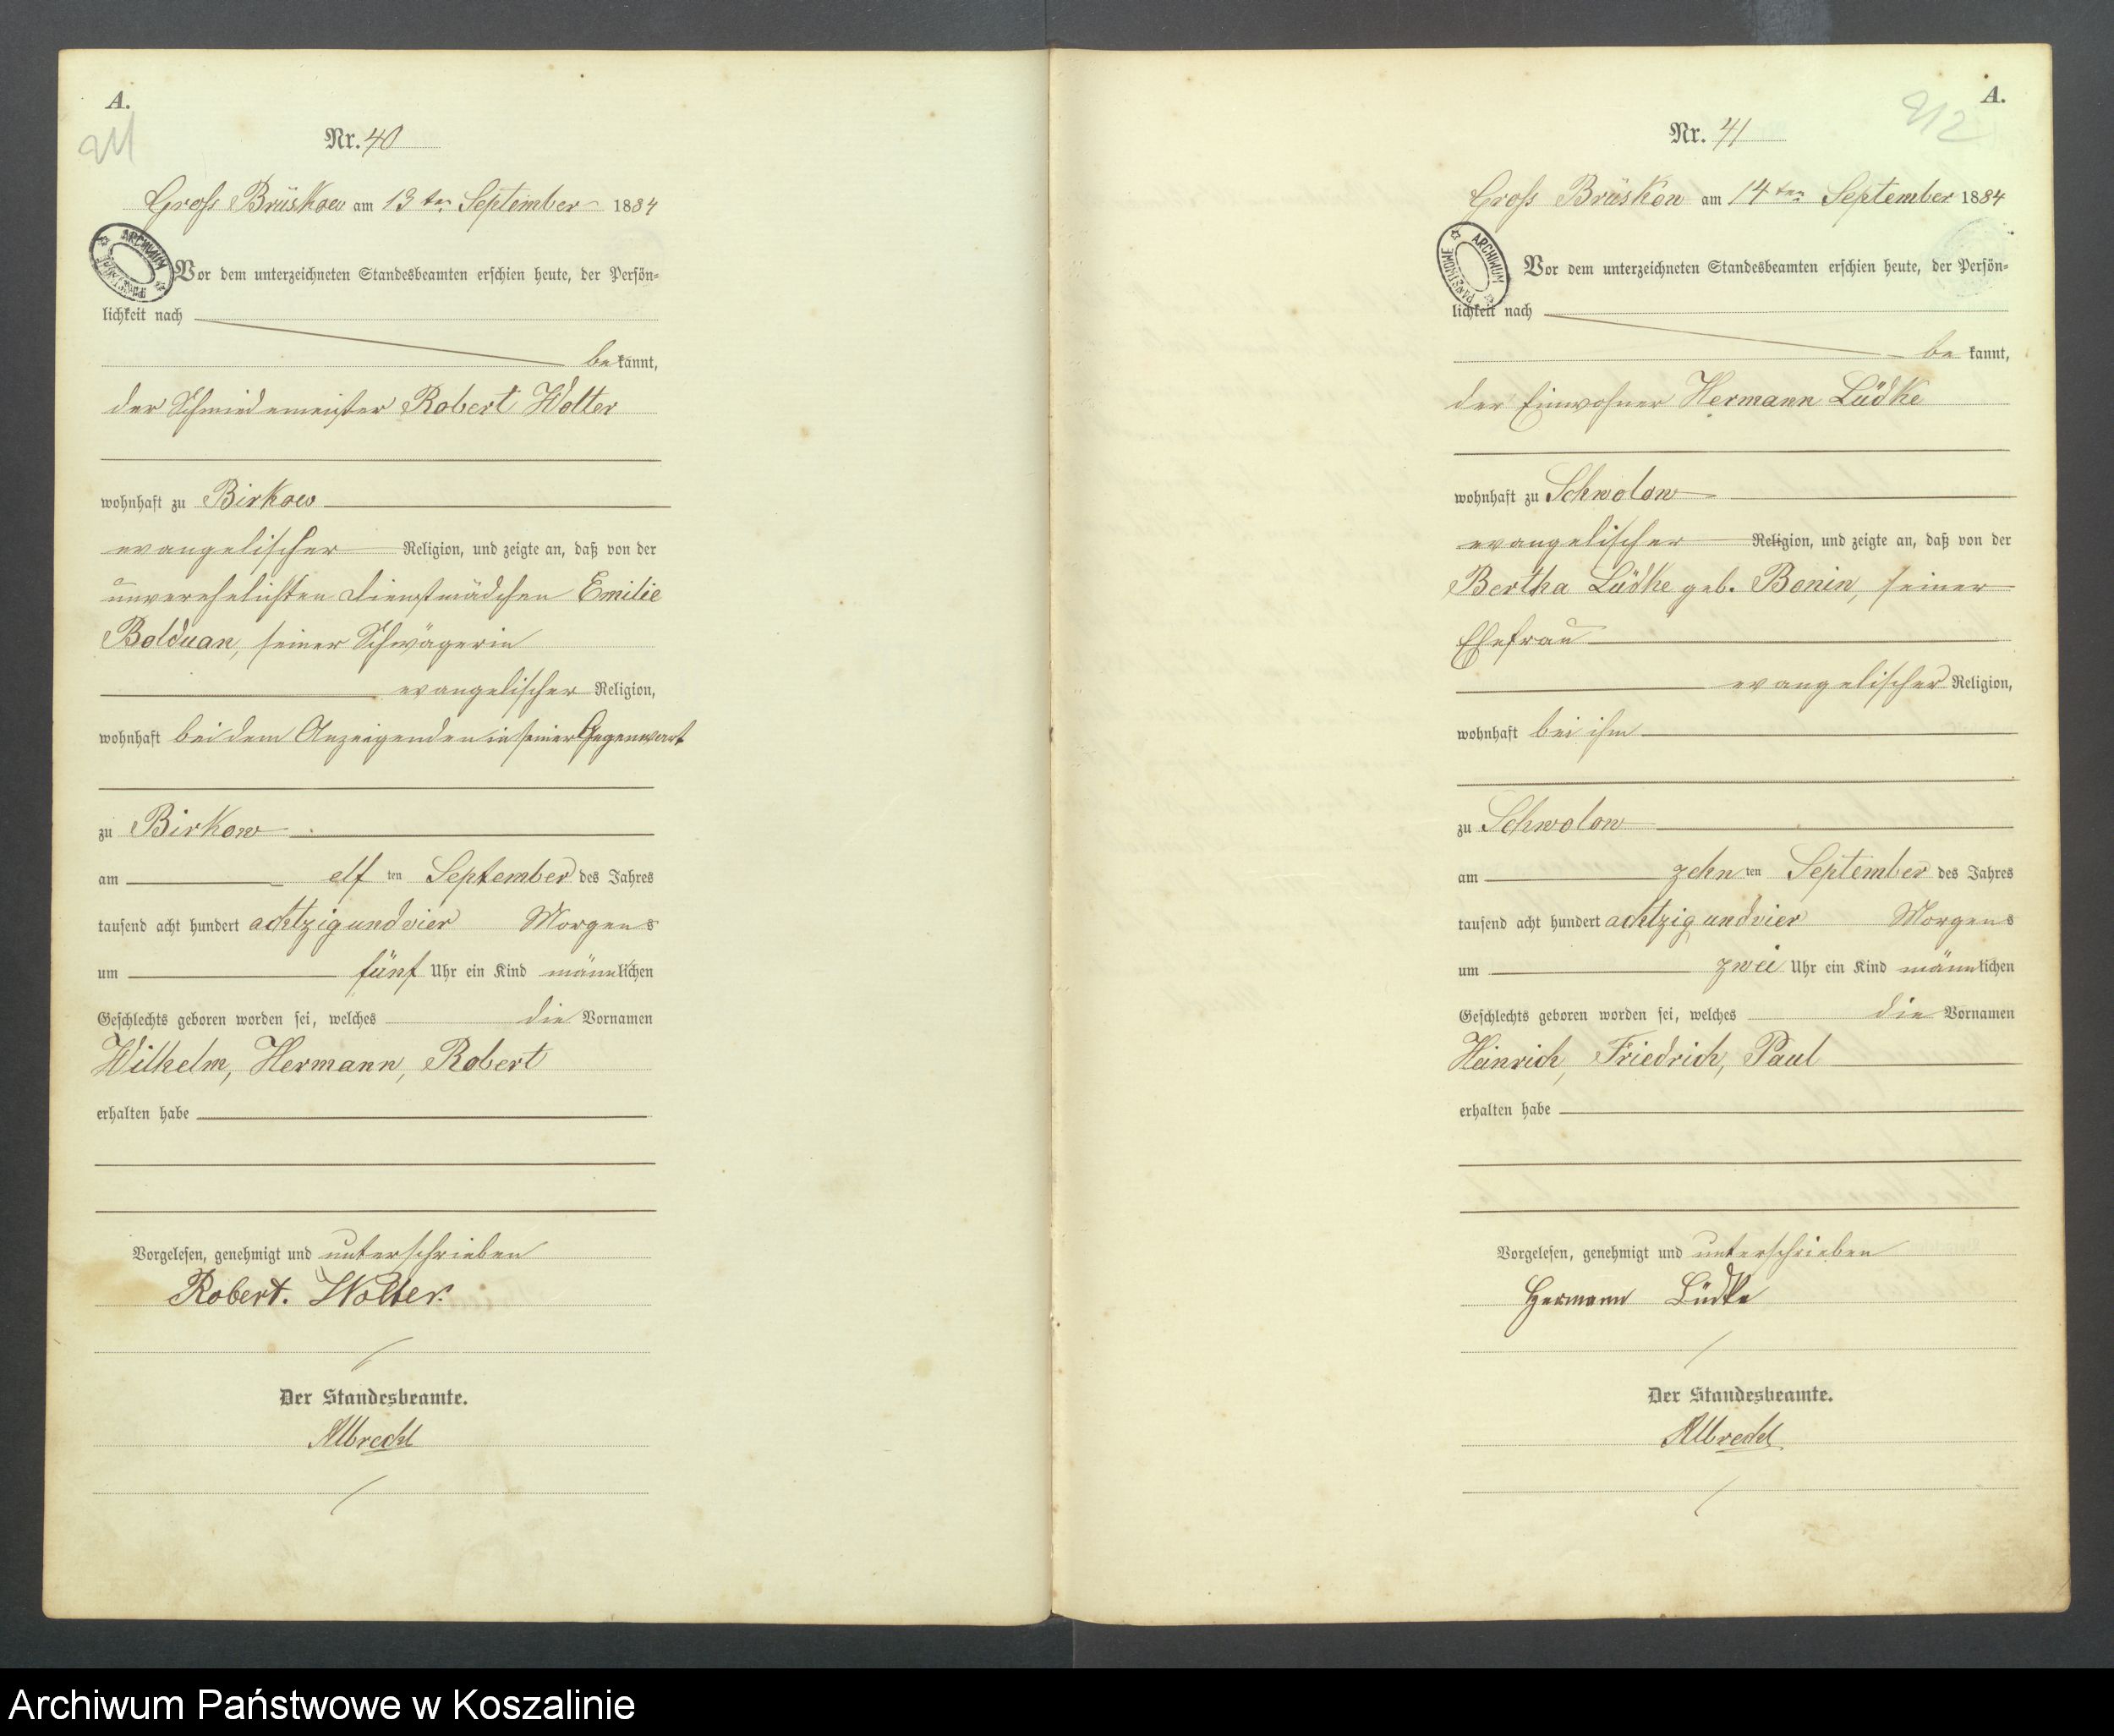 A.
Nr. 40
Groß Brüskow am 13ten September 1884
ARCHIWUM PAŃSTWOWE
Vor dem unterzeichneten Standesbeamten erschien heute, der Persön=
lichkeit nach
bekannt,
der Schmiedemeister Robert Wolter
wohnhaft zu Birkow
evangelischer Religion, und zeigte an, daß von der
unverehelichten Dienstmädchen Emilie
Bolduan, seiner Schwägerin
evangelischer Religion,
wohnhaft bei dem Anzeigenden in seiner Gegenwart
zu Birkow
am elf ten September des Jahres
tausend acht hundert achtzig und vier Morgens
um fünf Uhr ein Kind männlichen
Geschlechts geboren worden sei, welches die Vornamen
Wilhelm, Hermann, Robert
erhalten habe
Vorgelesen, genehmigt und unterschrieben
Robert. Wolter.
Der Standesbeamte.
Albrecht
A.
212
Nr. 41
Groß Brüskow am 14ten September 1884
ARCHIWUM PAŃSTWOWE
Vor dem unterzeichneten Standesbeamten erschien heute, der Persön=
lichkeit nach
bekannt,
der Einwohner Hermann Lüdke
wohnhaft zu Schwolow
evangelischer Religion, und zeigte an, daß von der
Bertha Lüdke geb. Bonin, seiner
Ehefrau
evangelischer Religion,
wohnhaft bei ihm
zu Schwolow
am zehn ten September des Jahres
tausend acht hundert achtzig und vier Morgens
um zwei Uhr ein Kind männlichen
Geschlechts geboren worden sei, welches die Vornamen
Heinrich, Friedrich, Paul
erhalten habe
Vorgelesen, genehmigt und unterschrieben
Hermann Lüdke
Der Standesbeamte.
Albrecht
Archiwum Państwowe w Koszalinie